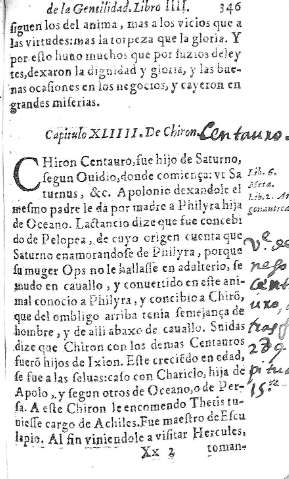 de la Gentilidad. Libro IIII. 346
siguen los del anima, mas a los vicios que a
las virtudes: mas la torpeza que la gloria. Y
por esto huuo muchos que por suzios deley
tes, dexaron la dignidad y gloria, y las bue-
nas ocasiones en los negocios, y cayeron en
grandes miserias.
Capitulo XLIIII. De Chiron. Centauro.
CHiron Centauro, fue hijo de Saturno,
segun Ouidio, donde comiença: vt Sa
turnus, &c. Apolonio dexandole el
mesmo padre le da por madre a Philyra hija
de Oceano. Lactancio dize que fue concebi
do de Pelopea, de cuyo origen cuenta que
Saturno enamorandose de Philyra, porque
su muger Ops no le hallasse en adulterio, se
mudo en cauallo, y conuertido en este ani
mal conocio a Philyra, y concibio a Chirõ,
que del ombligo arriba tenia semejança de
hombre, y de alli abaxo de cauallo. Snidas
dize que Chiron con los demas Centauros
fuerõ hijos de Ixion. Este creciẽdo en edad,
se fue a las seluas: caso con Chariclo, hija de
Apolo, y segun otros de Oceano, o de Per-
sa. A este Chiron le encomendo Thetis tu-
uiesse cargo de Achiles. Fue maestro de Escu
lapio. Al fin viniendole a visitar Hercules,
Xx 2 toman-
Lib. 6.
Meta.
Lib. 2. Ar
gonautica
vº. de
nego
Cent
uro,
tras f
239
pitu
15º